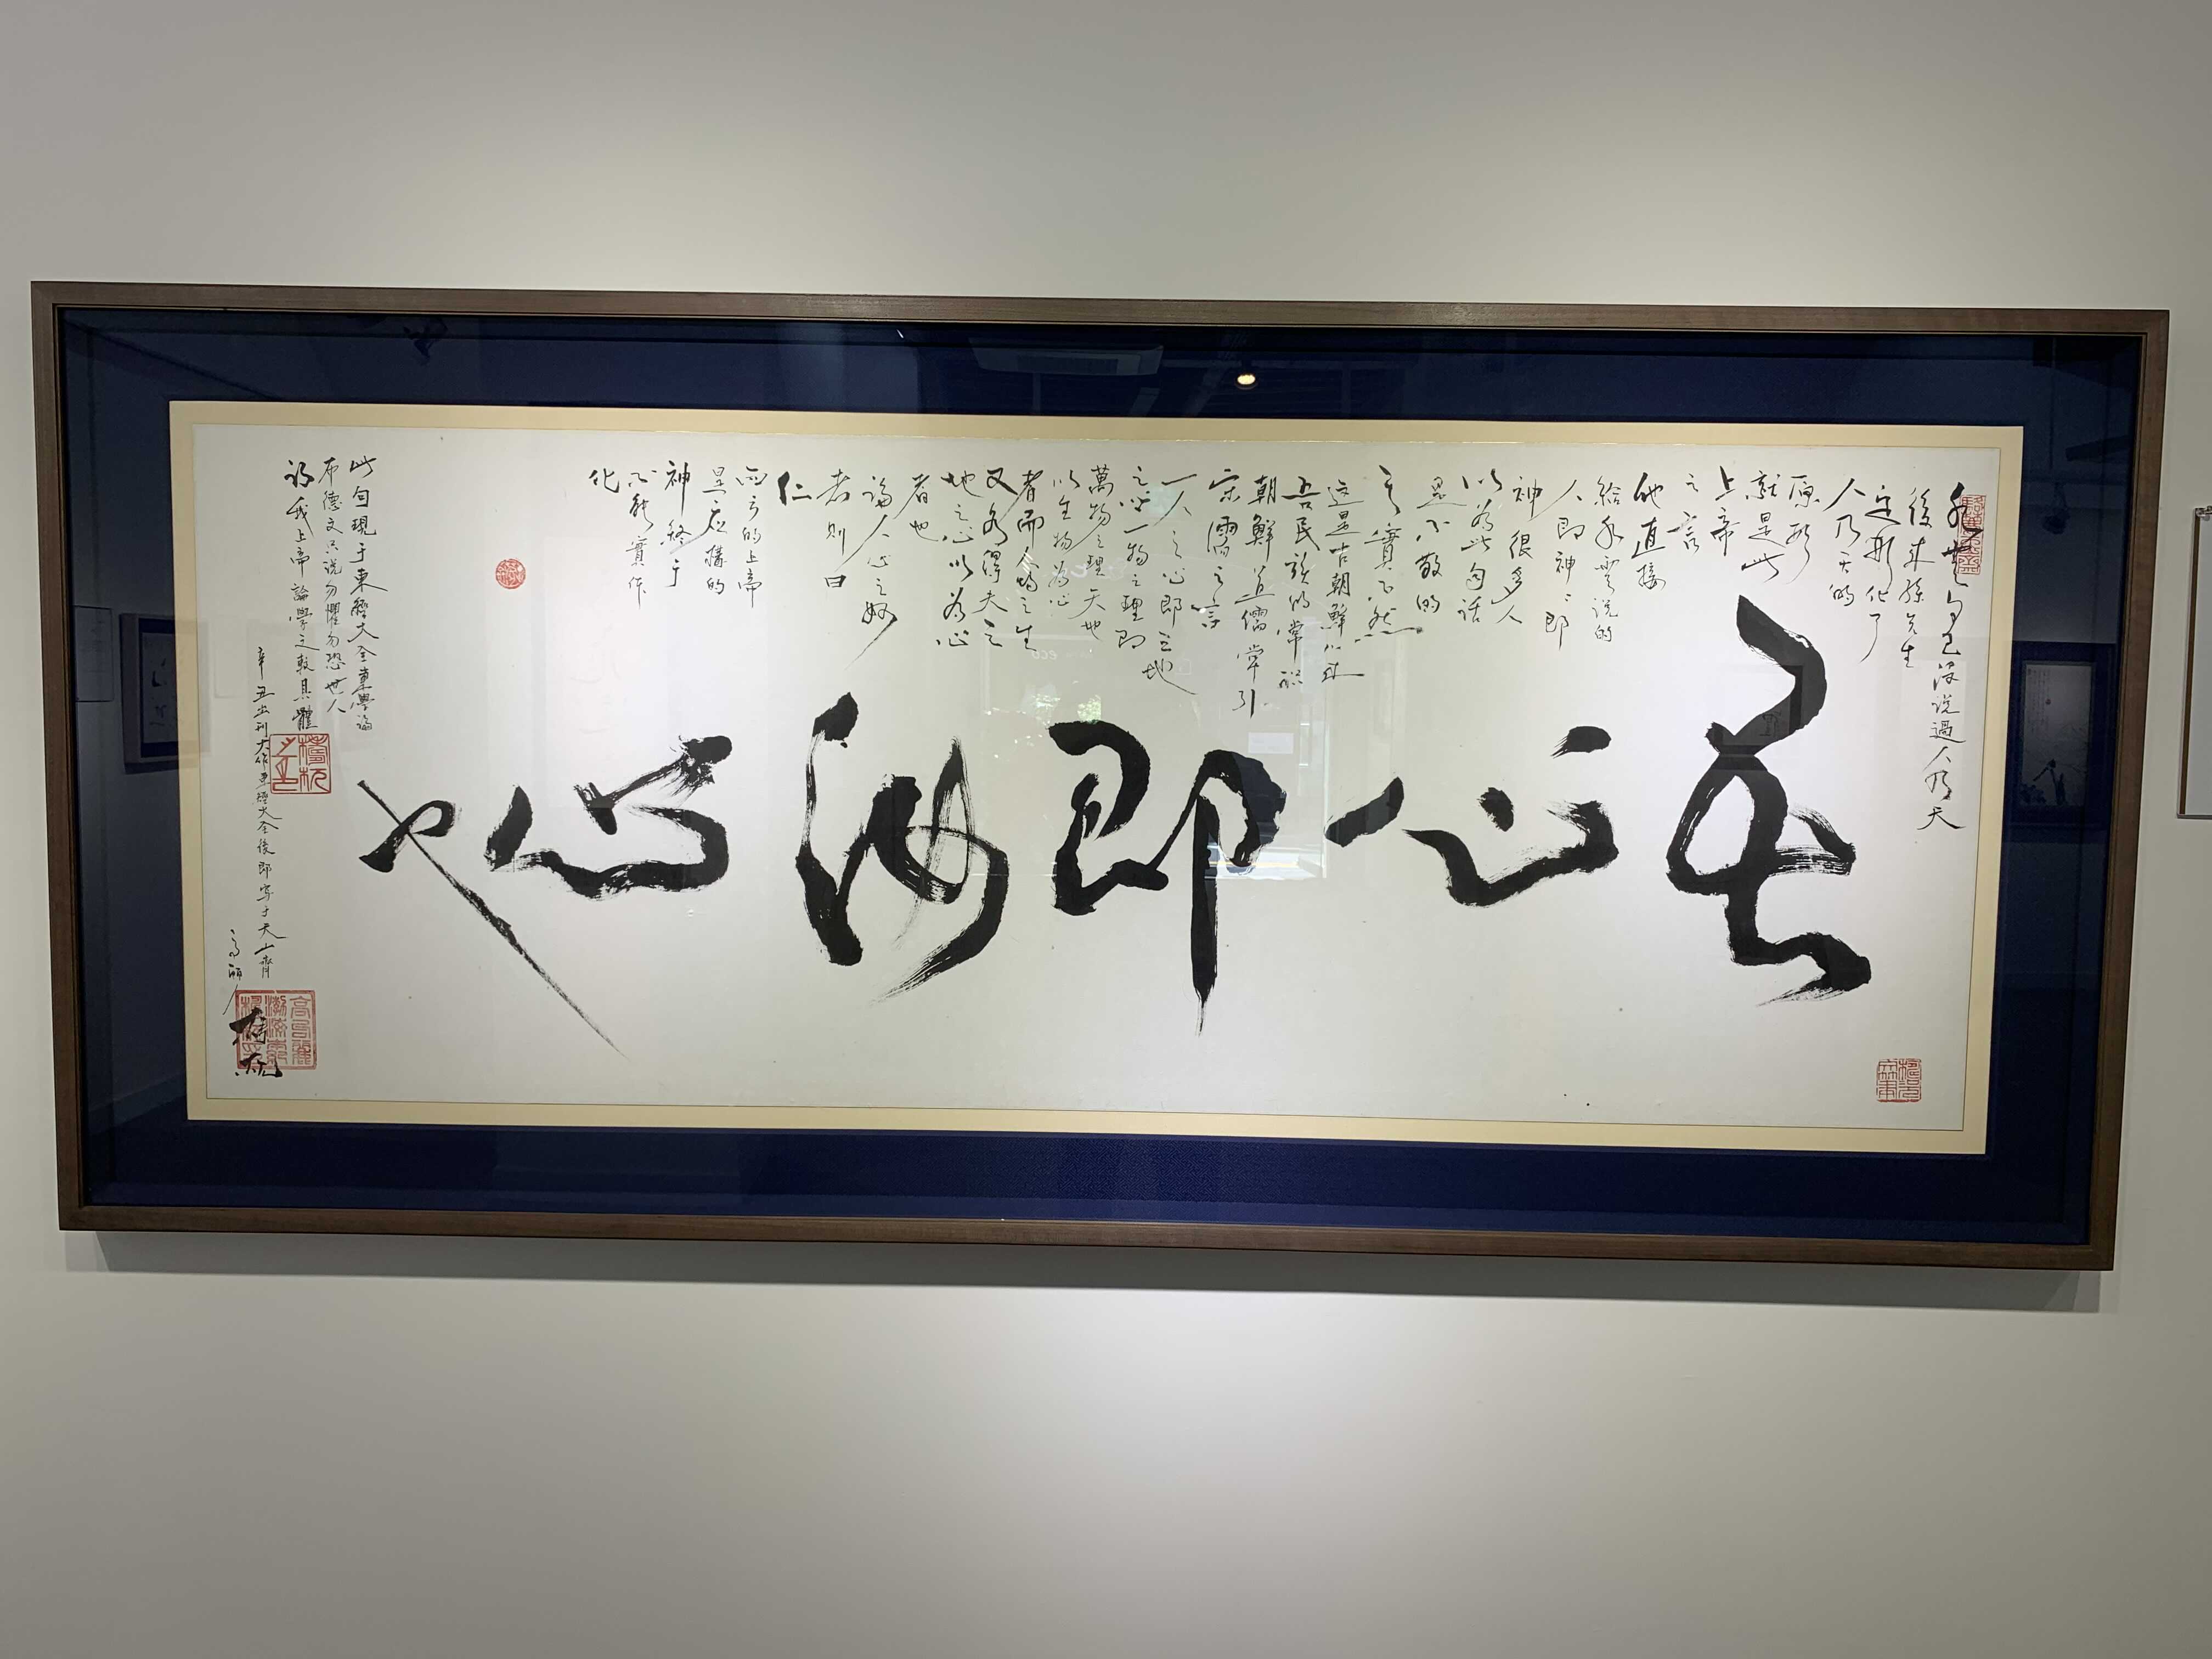 吾心即汝心也
水雲自己沒説過人乃天
後來孫先生
定形化了
人乃天的
原形
就是此
上帝
之言
他直接
給水雲説的
人即神、神即
神很多人
以為此句話
是不敬的
其實不然
這是古朝鮮以來
吾民族的常識
朝鮮道儒常引
宋儒之言
一人之心即天地
之心一物之理即
萬物之理天地
以生物為心
者而人物之生
又各得夫天
地之心以為心
者也
論人心之妙
者則曰
仁
西方的上帝
是一樣的
神終于
不能實作
化
此句現于東經大全東學論
布德文只説勿懼勿恐世人
謂我上帝論學文較具體
辛丑出刊大作東經大全後即寫于天山齋
高麗人
檮杌